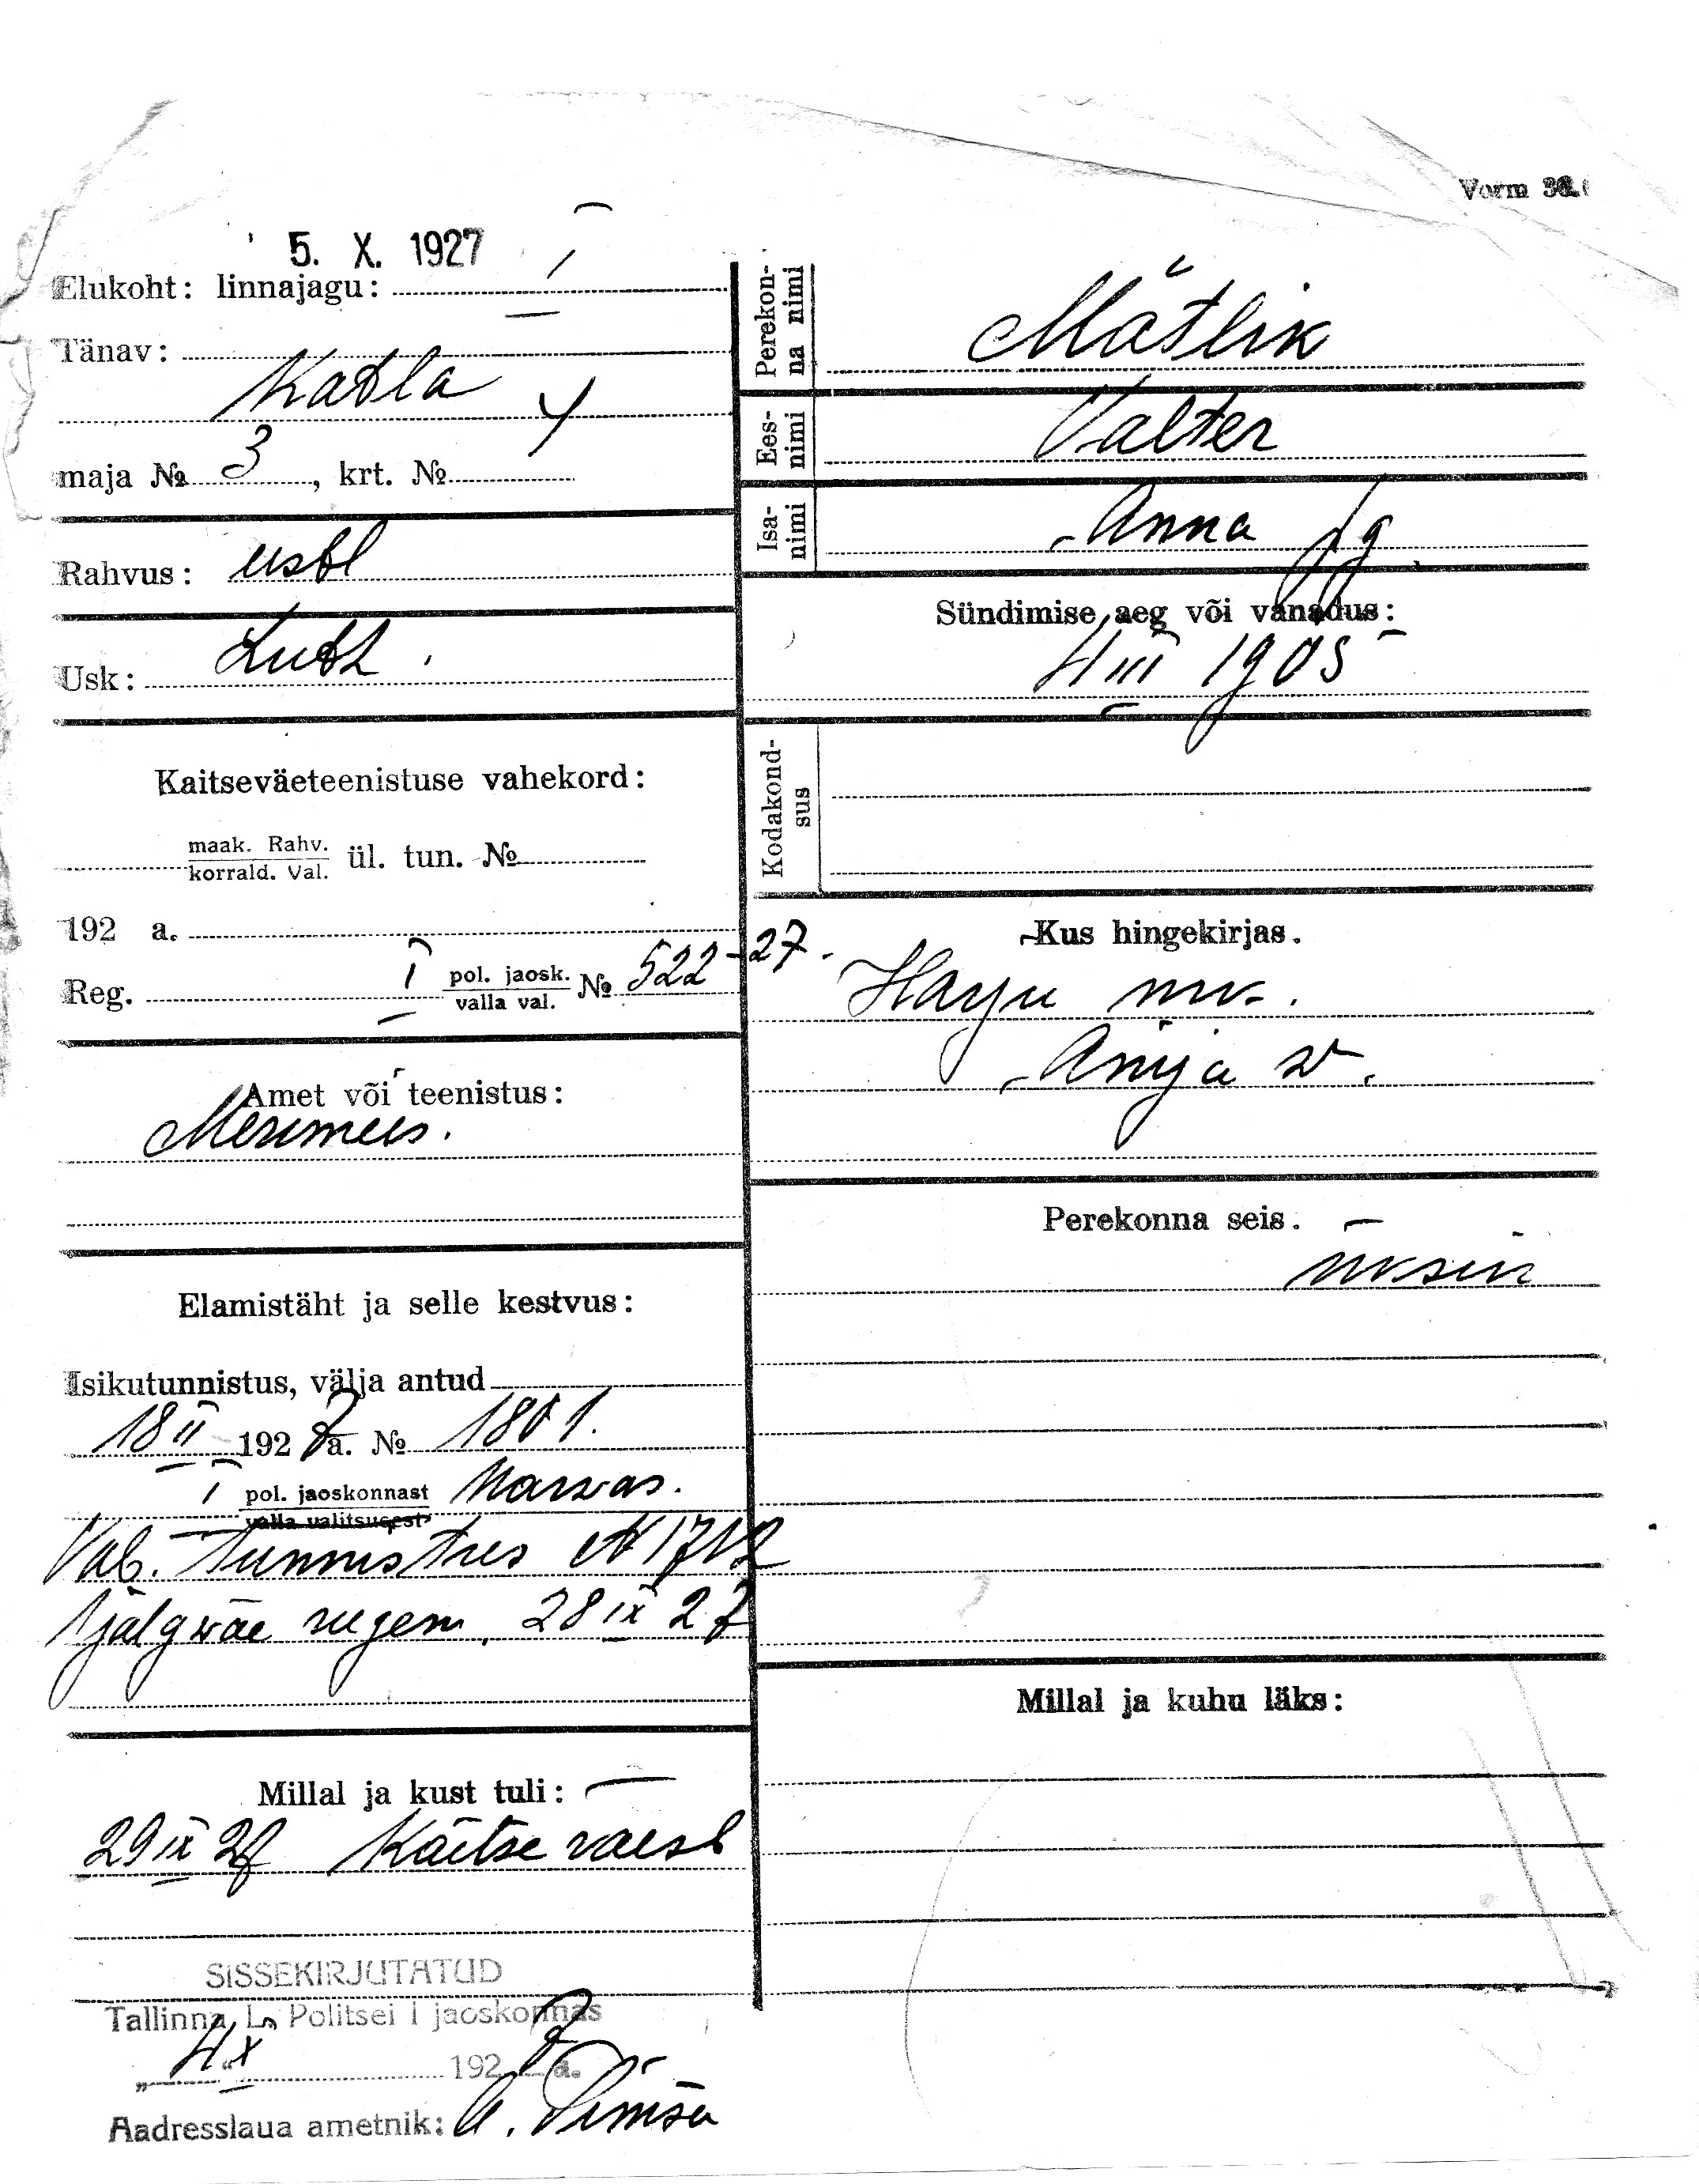 Vorm 36.
5. X. 1927
Elukoht: linnajagu: I
Tänav:
Katla
maja № 3, krt. № 4
Rahvus: eestl
Usk: Luth.
Kaitseväeteenistuse vahekord:
maak. Rahv.
korrald. Val. ül. tun. №
192 a.
Reg. I pol. jaosk.
valla val. № 522-27.
Amet või teenistus:
Meremees.
Elamistäht ja selle kestvus:
Isikutunnistus, välja antud
18 II 1927 a. № 1801.
I pol. jaoskonnast Narvas.
valla valitsusest
Vab. tunnistus N 1712
1 jalgväe rügem. 28 IX 27
Millal ja kust tuli:
29 IX 27 Kaitseväest
SISSEKIRJUTATUD
Tallinna L. Politsei I jaoskonnas
„4" X 1927 a.
Aadresslaua ametnik: A.
Perekon-
na nimi
Mätlik
Ees-
nimi
Valter
Isa-
nimi
Anna pg
Sündimise aeg või vanadus:
4 III 1905
Kodakond-
sus
Kus hingekirjas.
Harju mk.
Anija v.
Perekonna seis.
üksik
Millal ja kuhu läks: